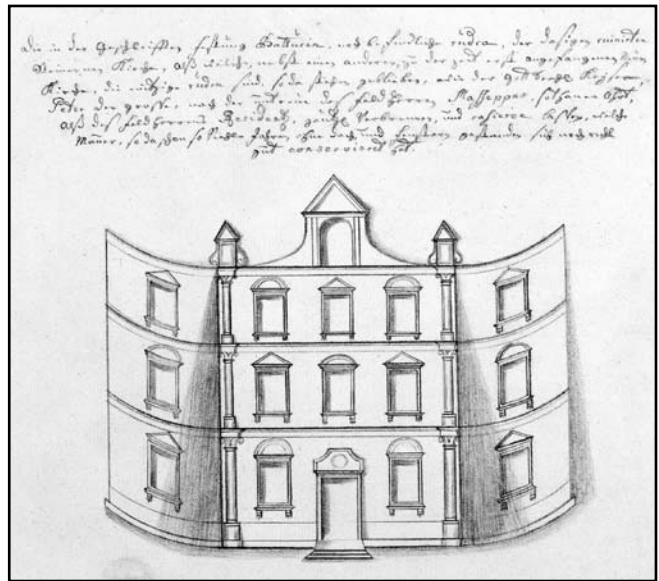 die in der Geschleifften festung Batturin, noch befindliche rudera, der dasigen ruinirten
Steinernen Kirche, alß welche, nebst einer anderen, zu der zeit erst angefangenen
Kirche, die eintzige rudera sind, so da stehen geblieben, als der Kayser
Peter der grosse nach der des feldherren Masseppa, Ohrt,
alß des feldherrens Residentz, verbrennen, und rasieren lassen, welche
Mauer, so da schon so viehle Jahren ohne dach und fenstern gestanden, sich noch recht
gut conserviret hat.